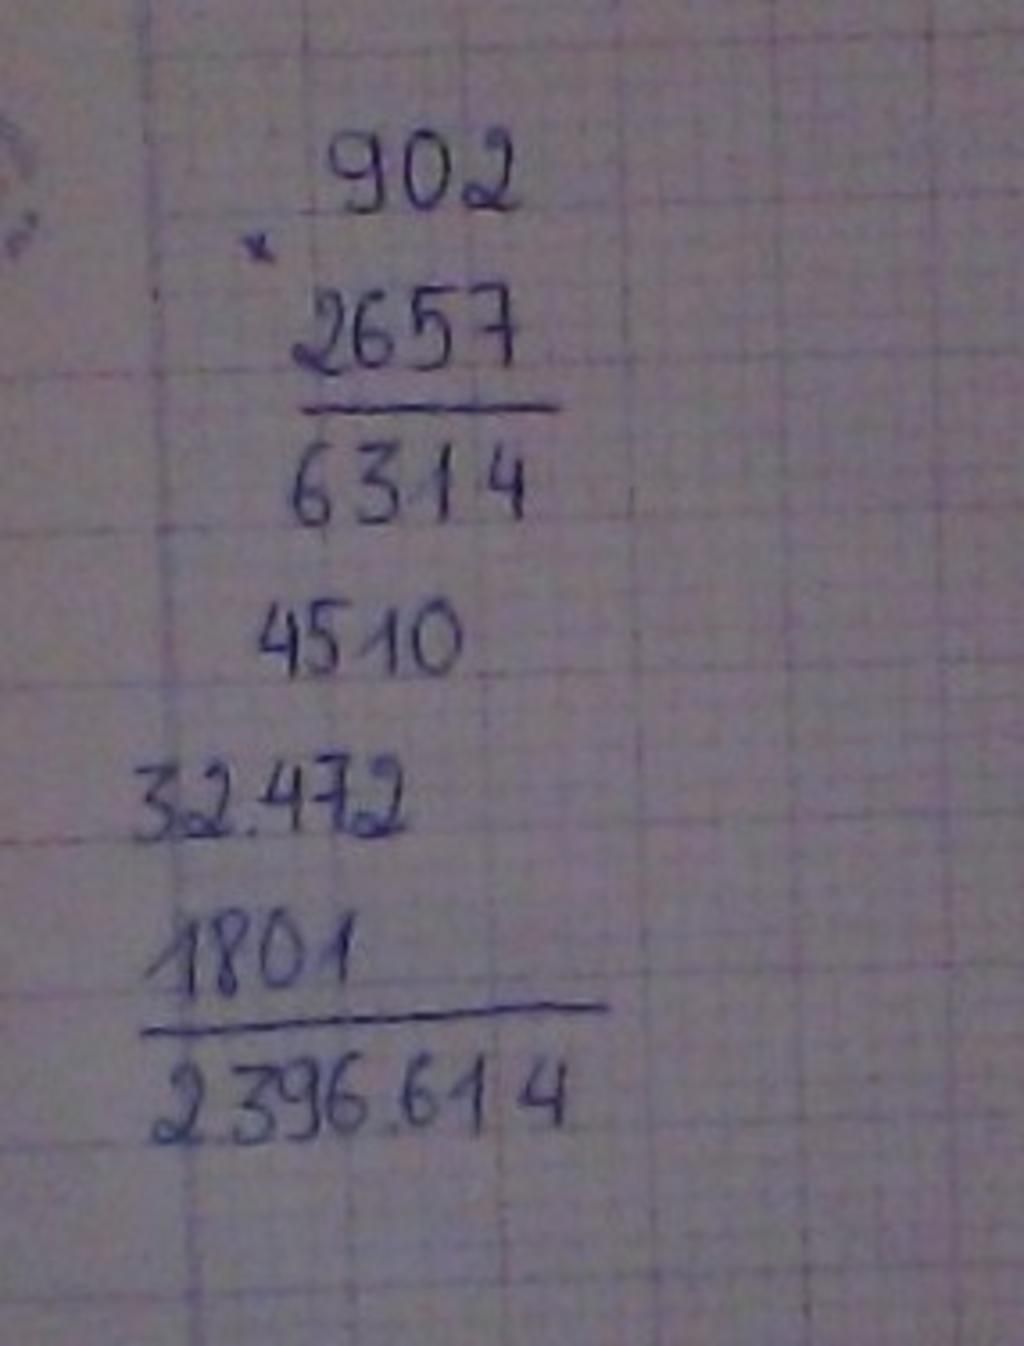 902
×
2657
6314
4510
32.472
1801
2.396.614